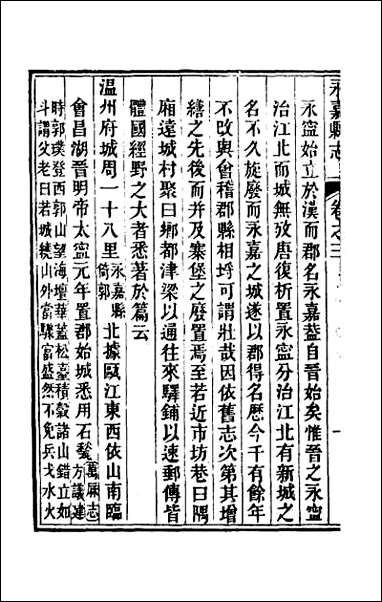 永嘉縣志 卷之三
永寍始立於漢而郡名永嘉葢自晉始矣惟晉之永寍
治江北而城無攷唐復析置永寍分治江北有新城之
名不久旋廢而永嘉之城遂以郡得名歷今千有餘年
不改與會稽郡縣相埒可謂壯哉因依舊志次第其增
繕之先後而并及寨堡之廢置焉至若近市坊巷曰隅
廂遠城村聚曰鄕都津梁以通往來驛鋪以速郵傳皆
體國經野之大者悉著於篇云
温州府城周一十八里永嘉縣倚郭北據甌江東西依山南臨
會昌湖晉明帝太寍元年置郡始城悉用石甃萬厤志方議建
時郭璞登西郭山望海壇華蓋松臺積穀諸山錯立如
斗謂父老曰若城繞山外當驟富盛然不免兵戈水火